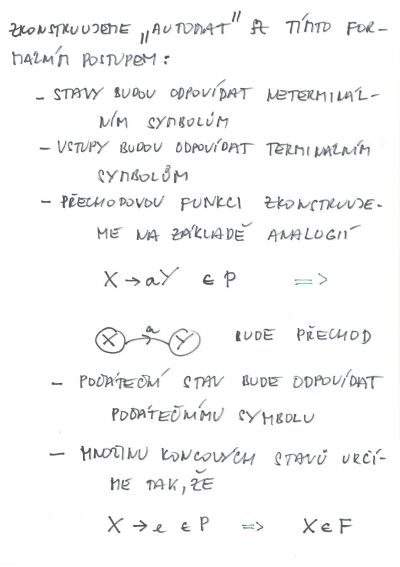 ZKONSTRUUJEME „AUTOMAT" A TÍMTO FOR-
MÁLNÍM POSTUPEM:
- STAVY BUDOU ODPOVÍDAT NETERMINÁL-
NÍM SYMBOLŮM
- VSTUPY BUDOU ODPOVÍDAT TERMINÁLNÍM
SYMBOLŮM
- PŘECHODOVOU FUNKCI ZKONSTRUUJE-
ME NA ZÁKLADĚ ANALOGIÍ
X → aY ∈ P =>
X a Y BUDE PŘECHOD
- POČÁTEČNÍ STAV BUDE ODPOVÍDAT
POČÁTEČNÍMU SYMBOLU
- MNOŽINU KONCOVÝCH STAVŮ URČÍ-
ME TAK, ŽE
X → e ∈ P => X ∈ F